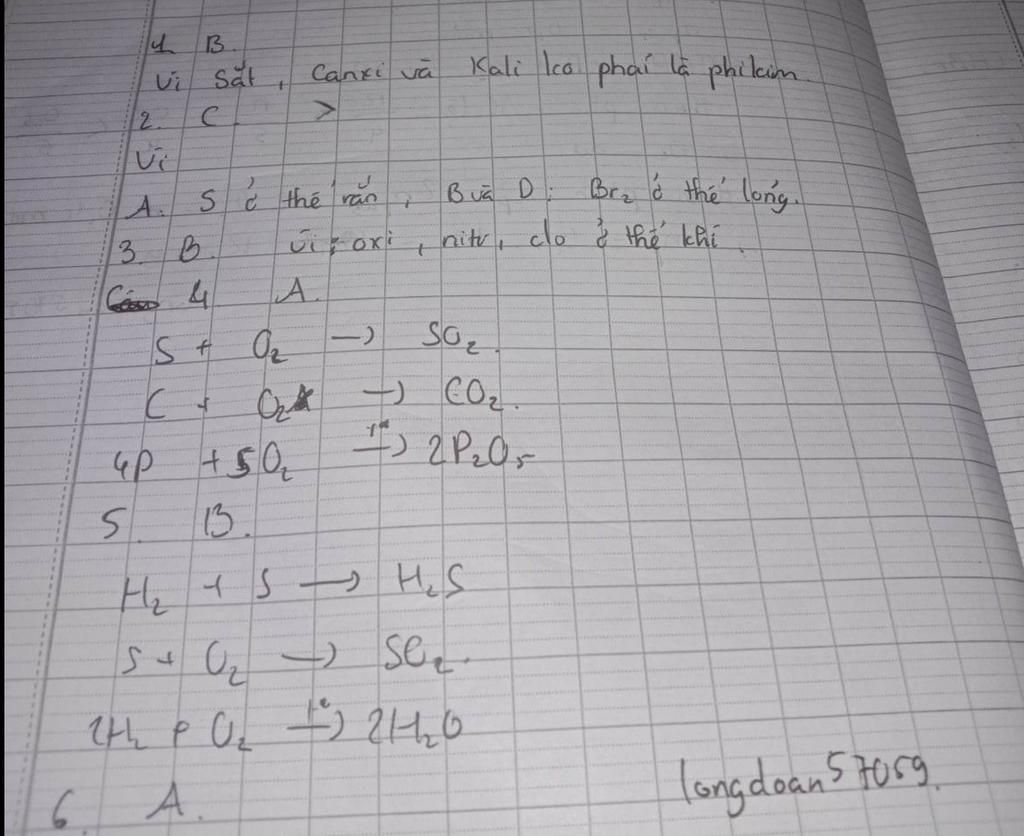 1 B.
Vì Sắt, Canxi và Kali ko phải là phi kim
2. C. >
Vì
A. S ở thể rắn, B và D: Br₂ ở thể lỏng.
3. B. Vì: oxi, nitơ, clo ở thể khí.
4 A.
S + O₂ → SO₂.
C + O₂ → CO₂.
4P + 5O₂ t° → 2P₂O₅
5. B.
H₂ + S → H₂S
S + O₂ → SO₂.
2H₂ + O₂ t° → 2H₂O
longdoan57059.
6. A.